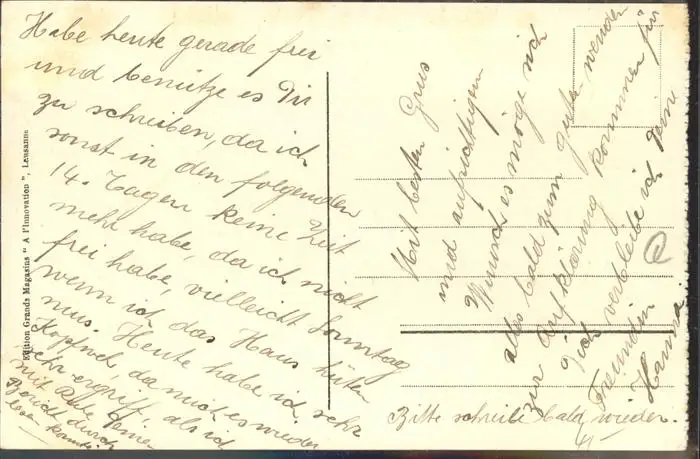 Habe heute gerade frei
und benütze es Dir
zu schreiben, da ich
sonst in den folgenden
14. Tagen keine Zeit
mehr habe, da ich nicht
frei habe, vielleicht Sonntag
wenn ich das Haus hüten
mus. Heute habe ich sehr
Kopfweh, da mich es wieder
sehr ergriff, als ich
mit Rede Deinen
Bericht durch
lesen konnte.
Mit besten Grus
und aufrichtigen
Wunsch es möge sich
alles bald zum guten wenden
zur Aufklärung kommen für
Dich verbleibe ich Deine
Freundin
Hanna.
Bitte schreibe bald wieder.
Edition Grands Magasins " A l'Innovation ", Lausanne